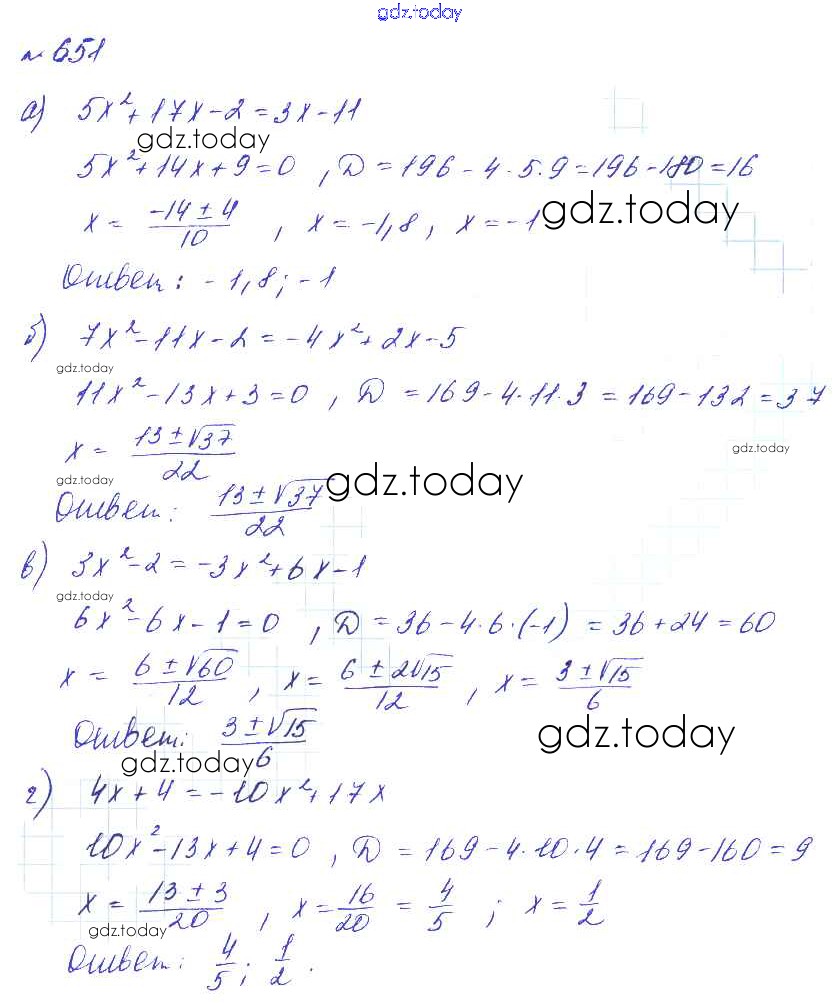 gdz.today
№ 651
а) 5x² + 17x - 2 = 3x - 11
gdz.today
5x² + 14x + 9 = 0 , D = 196 - 4 · 5 · 9 = 196 - 180 = 16
x = (-14 ± 4)/10 , x = -1,8 , x = -1
gdz.today
Ответ: -1,8; -1
б) 7x² - 11x - 2 = -4x² + 2x - 5
gdz.today
11x² - 13x + 3 = 0 , D = 169 - 4 · 11 · 3 = 169 - 132 = 37
x = (13 ± √37)/22
gdz.today
gdz.today
Ответ: (13 ± √37)/22
gdz.today
в) 3x² - 2 = -3x² + 6x - 1
gdz.today
6x² - 6x - 1 = 0 , D = 36 - 4 · 6 · (-1) = 36 + 24 = 60
x = (6 ± √60)/12 , x = (6 ± 2√15)/12 , x = (3 ± √15)/6
Ответ: (3 ± √15)/6
gdz.today
gdz.today
г) 4x + 4 = -10x² + 17x
10x² - 13x + 4 = 0 , D = 169 - 4 · 10 · 4 = 169 - 160 = 9
x = (13 ± 3)/20 , x = 16/20 = 4/5 ; x = 1/2
gdz.today
Ответ: 4/5; 1/2.